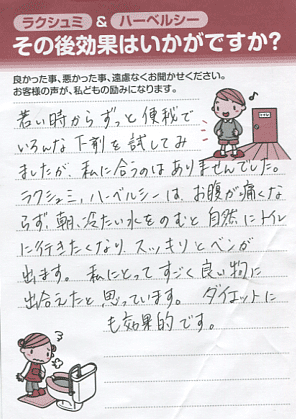 ラクシュミ & ハーベルシー
その後効果はいかがですか?
良かった事、悪かった事、遠慮なくお聞かせください。
お客様の声が、私どもの励みになります。
若い時からずっと便秘で
いろんな下剤を試してみ
ましたが、私に合うのはありませんでした。
ラクシュミ、ハーベルシーは、お腹が痛くな
らず、朝、冷たい水をのむと自然にトイレ
に行きたくなり、スッキリとベンが
出ます。私にとってすごく良い物に
出会えたと思っています。ダイエットに
も効果的です。